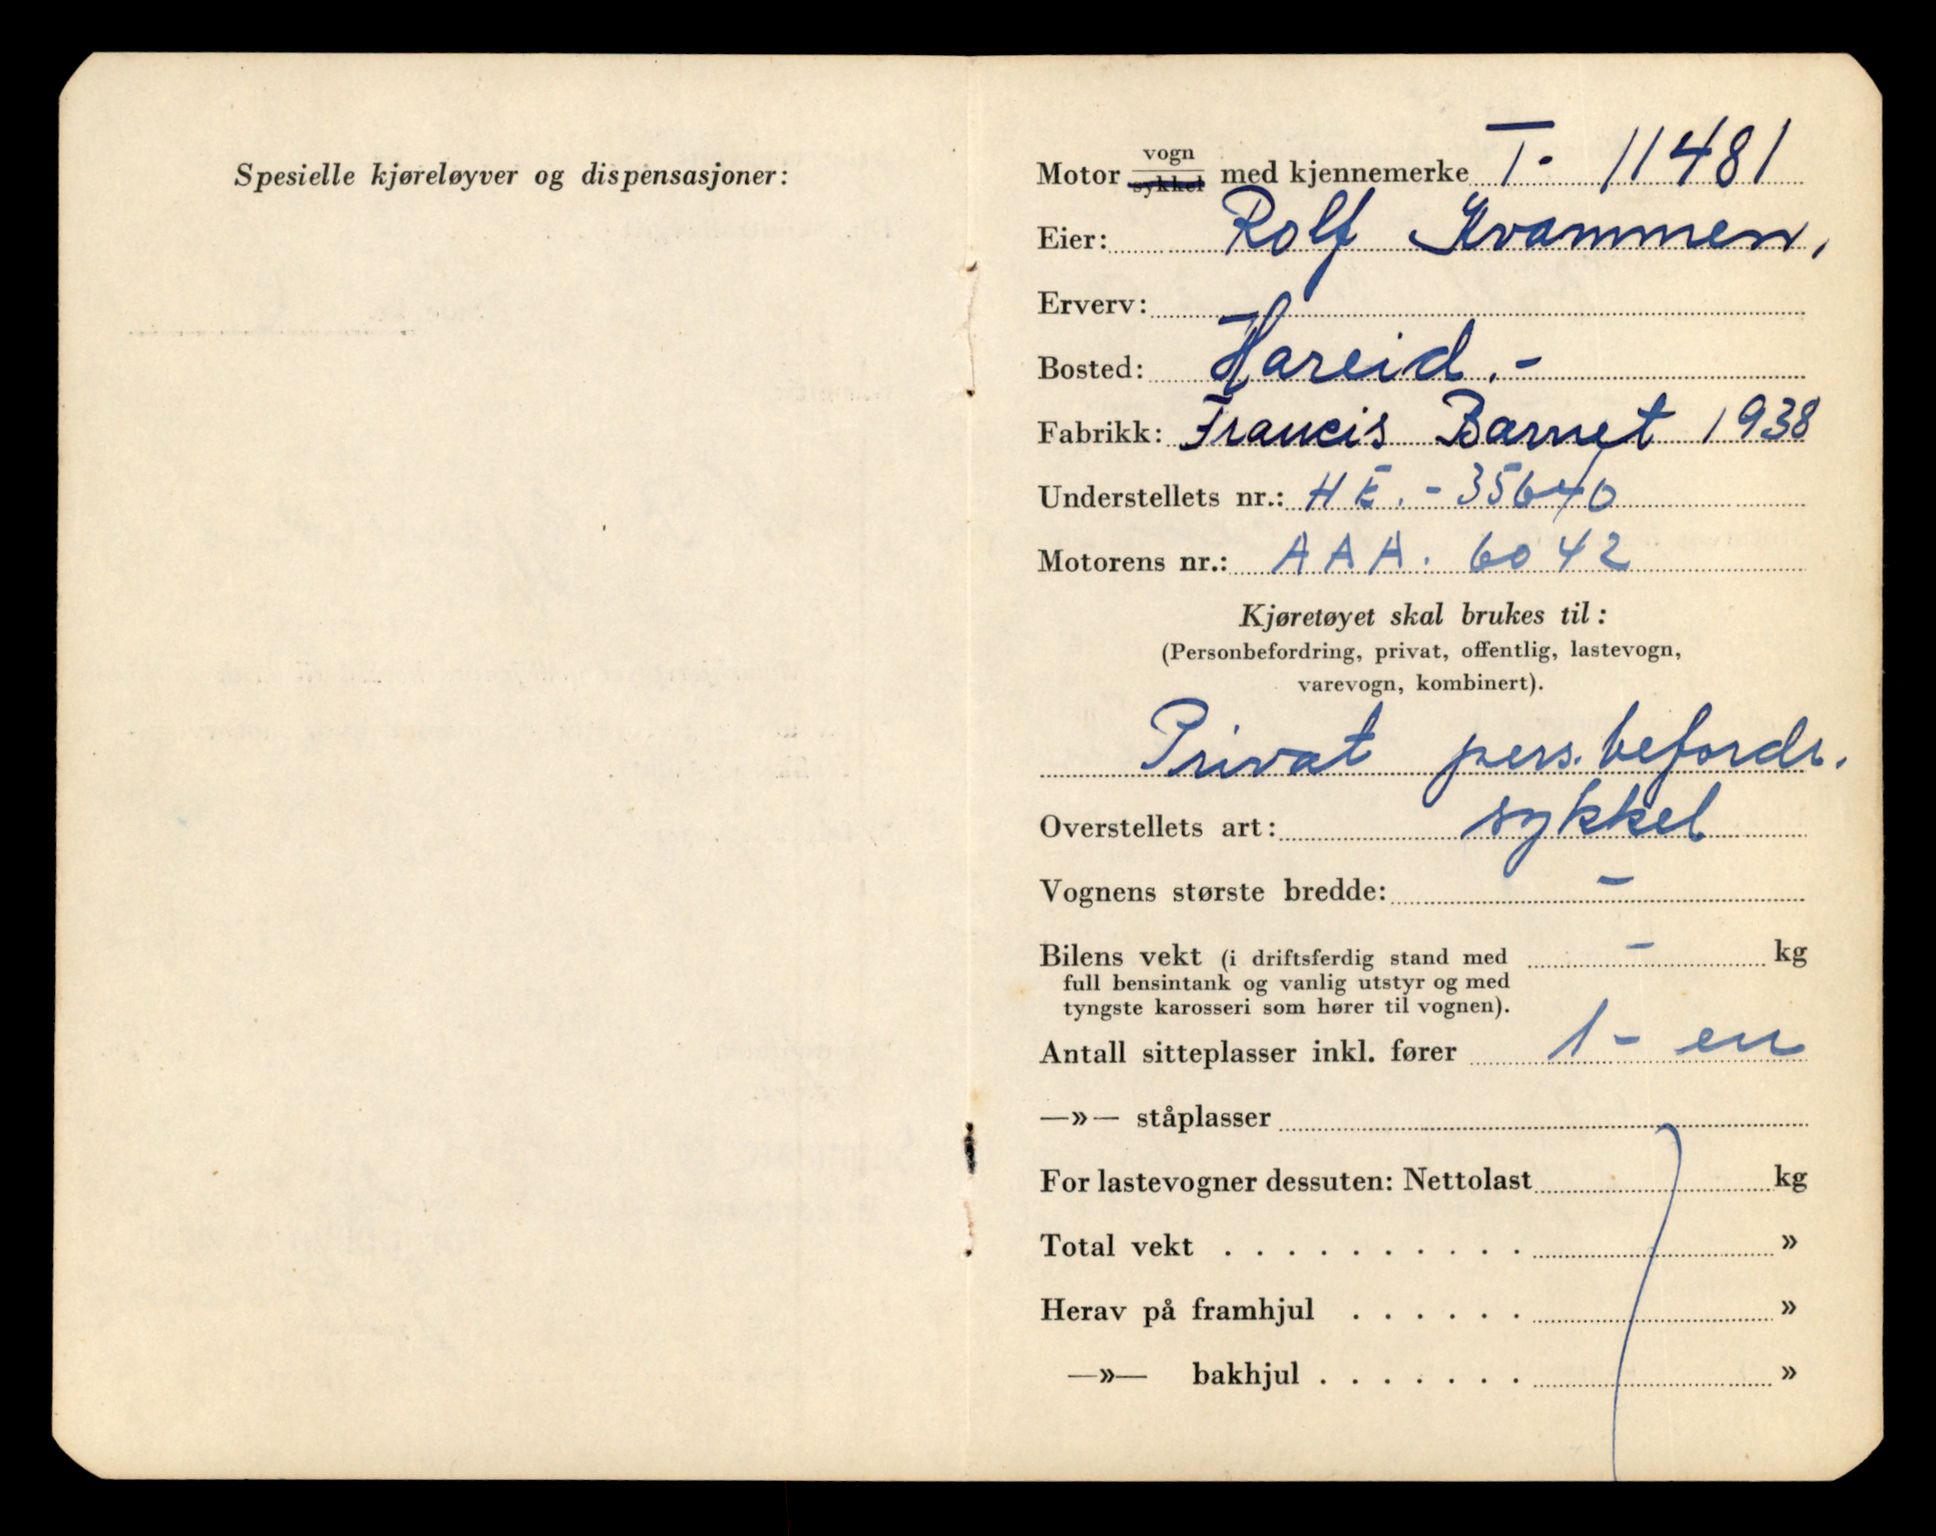 Spesielle kjøreløyver og dispensasjoner:
Motor vogn sykkel med kjennemerke T- 11481
Eier: Rolf Kvammen,
Erverv:
Bosted: Hareid.-
Fabrikk: Francis Barnet 1938
Understellets nr.: HE.-35640
Motorens nr.: AAA. 6042
Kjøretøyet skal brukes til:
(Personbefordring, privat, offentlig, lastevogn,
varevogn, kombinert).
Privat pers.befordr.
Overstellets art: sykkel
Vognens største bredde: -
Bilens vekt (i driftsferdig stand med - kg
full bensintank og vanlig utstyr og med
tyngste karosseri som hører til vognen).
Antall sitteplasser inkl. fører 1- en
—»— ståplasser
For lastevogner dessuten: Nettolast kg
Total vekt . . . . . . . . . . »
Herav på framhjul . . . . . . »
—»— bakhjul . . . . . . . »